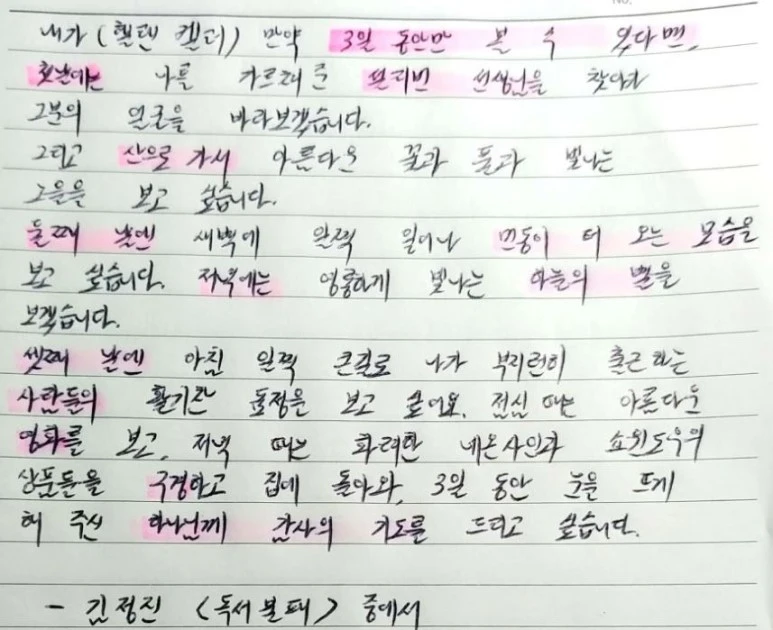 내가 (헬렌 켈러) 만약 3일 동안만 볼 수 있다면,
첫날에는 나를 가르쳐 준 쓰리번 선생님을 찾아가
그분의 얼굴을 바라보겠습니다.
그리고 산으로 가서 아름다운 꽃과 풀과 빛나는
노을을 보고 싶습니다.
둘째 날엔 새벽에 일찍 일어나 먼동이 터 오는 모습을
보고 싶습니다. 저녁에는 영롱하게 빛나는 하늘의 별을
보겠습니다.
셋째 날엔 아침 일찍 큰길로 나가 부지런히 출근하는
사람들의 활기찬 표정을 보고 싶어요. 점심 때는 아름다운
영화를 보고, 저녁 때는 화려한 네온사인과 쇼윈도우의
상품들을 구경하고 집에 돌아와, 3일 동안 눈을 뜨게
해 주신 하나님께 감사의 기도를 드리고 싶습니다.
- 김정진 <독서불패> 중에서